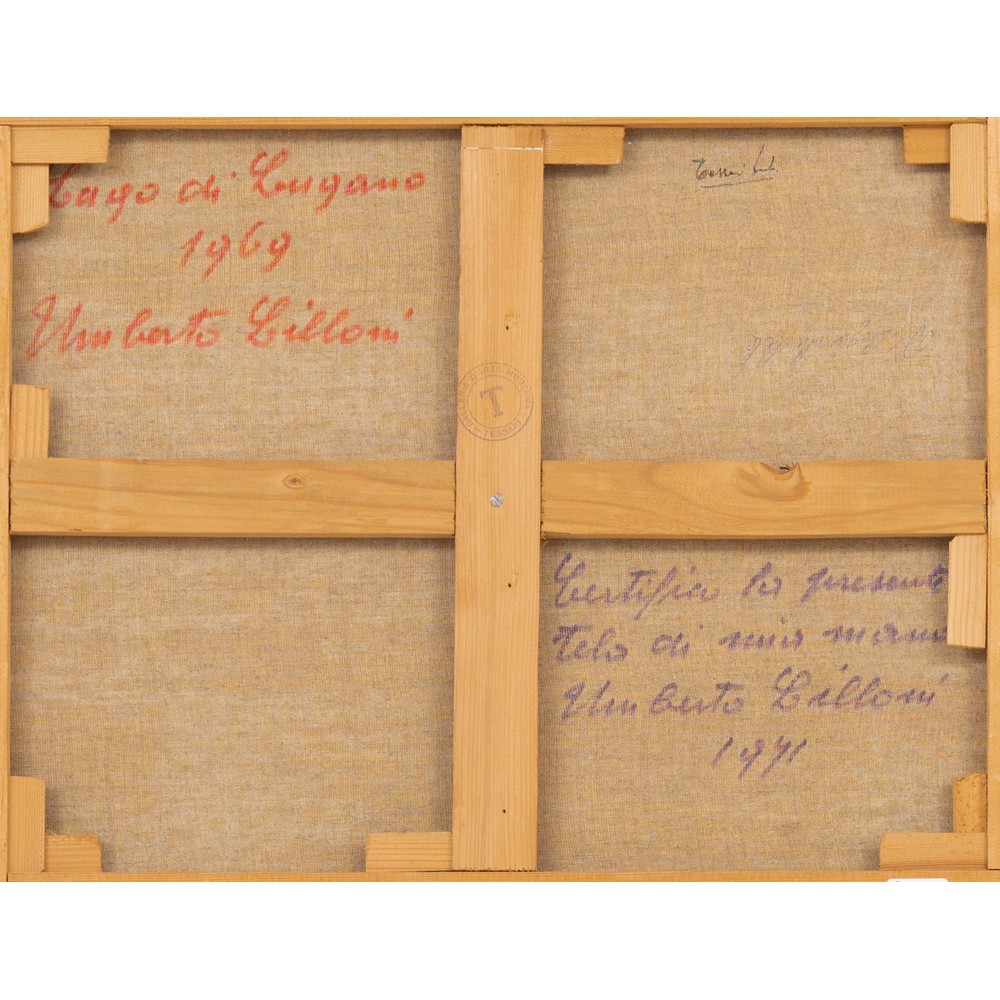 Lago di Lugano
1969
Umberto Lilloni
T
Certifico la presente
tela di mia mano
Umberto Lilloni
1971